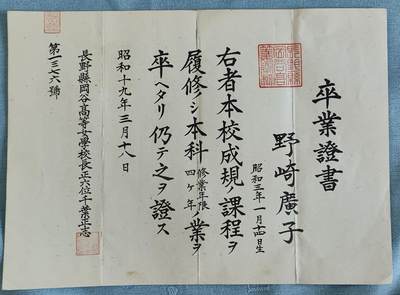 卒業證書
野崎廣子
昭和三年一月十四日生
右者本校成規ノ課程ヲ
履修シ本科修業年限四ケ年ノ業ヲ
卒ヘタリ仍テ之ヲ證ス
昭和十九年三月十八日
長野縣岡谷高等女學校長正六位千葉正志
第一三七六號